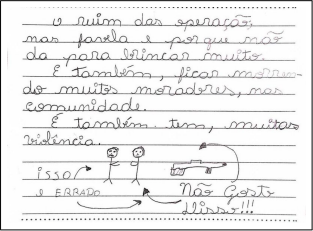 o ruim das operação
nas favela e porque não
da para brincar muito.
E também, ficar morren-
do muitos moradores, nas
comunidade.
E também tem, muitas
violência.
isso
e ERRADO
Não Gosto
disso!!!